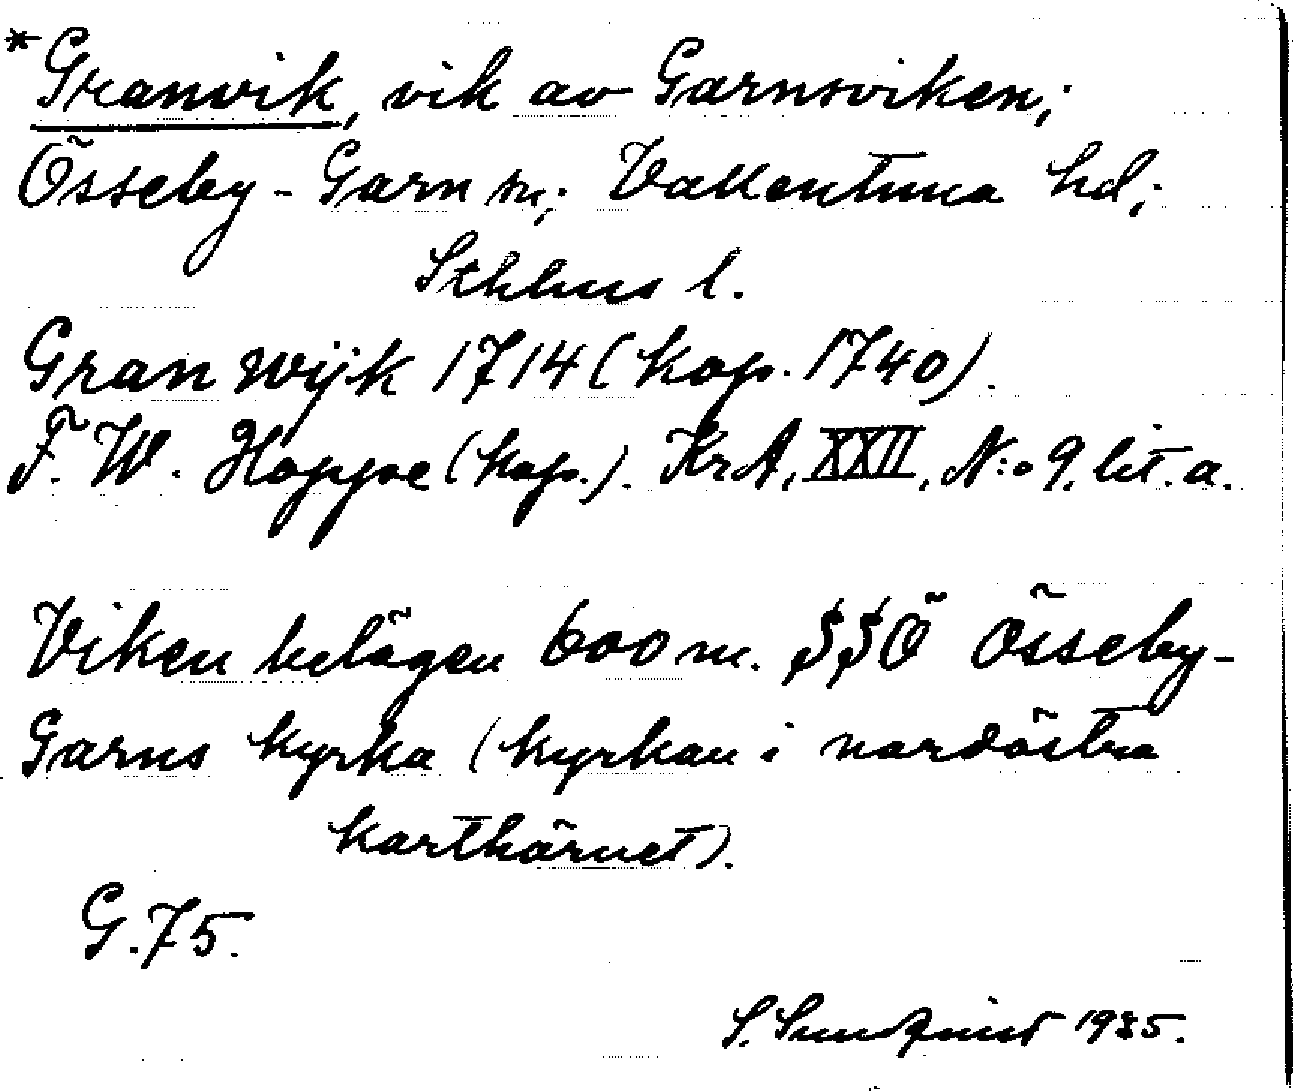 *Granvik, vik av Garnsviken;
Össeby-Garn sn; Vallentuna hd;
Sthlms l.
Gran wijk 1714 (kop. 1740).
F. W. Hoppe (kop.). KrA, XXII, N:o 9. lit. a.
Viken belägen 600 m. SSÖ Össeby-
Garns kyrka (kyrkan i nordöstra
karthörnet).
G. 75.
S. Sundqvist 1935.